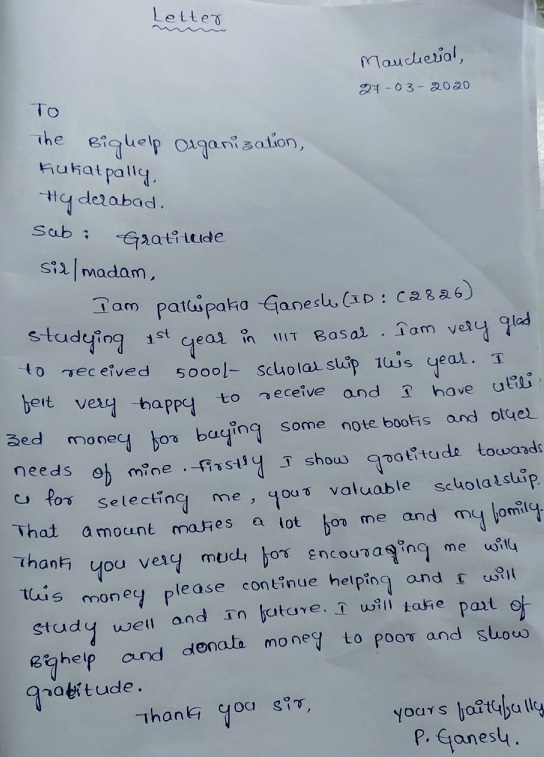 Letter
Mancherial,
27-03-2020
To
The Bighelp Organization,
Kukatpally,
Hyderabad.
Sub : Gratitude
Sir/madam,
I am patlipaka Ganesh (ID : C2826)
studying 1st year in IIIT Basar. I am very glad
to received 5000/- scholarship this year. I
felt very happy to receive and I have utili
zed money for buying some notebooks and other
needs of mine. Firstly I show gratitude towards
u for selecting me, your valuable scholarship.
That amount makes a lot for me and my family.
Thank you very much for encouraging me with
this money please continue helping and I will
study well and in future. I will take part of
Bighelp and donate money to poor and show
gratitude.
Thank you sir,
yours faithfully
P. Ganesh.